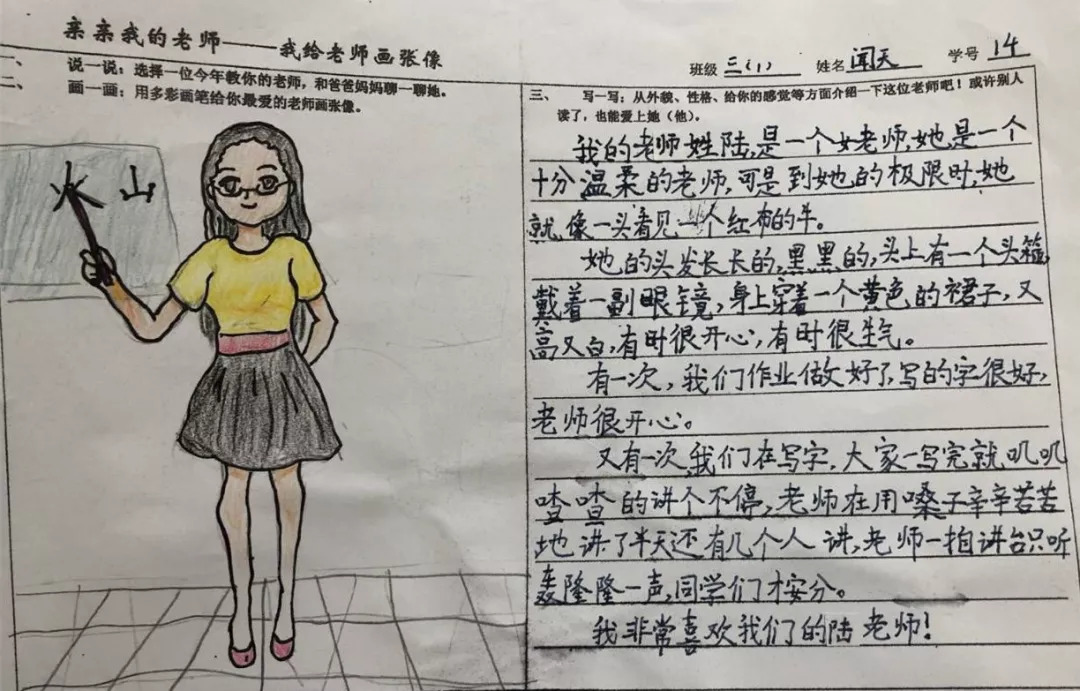 亲亲我的老师——我给老师画张像
一、 说一说：选择一位今年教你的老师，和爸爸妈妈聊一聊她。
二、 画一画：用多彩画笔给你最爱的老师画张像。
火 山
班级 三(1) 姓名 闻天 学号 14
三、 写一写：从外貌、性格、给你的感觉等方面介绍一下这位老师吧！或许别人
读了，也能爱上她（他）。
我的老师姓陆,是一个女老师,她是一个
十分温柔的老师,可是到她的极限时,她
就像一头看见一个红布的牛。
她的头发长长的,黑黑的,头上有一个头箍,
戴着一副眼镜,身上穿着一个黄色的裙子,又
高又白,有时很开心,有时很生气。
有一次,我们作业做好了,写的字很好,
老师很开心。
又有一次,我们在写字,大家一写完就叽叽
喳喳的讲个不停,老师在用嗓子辛辛苦苦
地讲了半天还有几个人讲,老师一拍讲台只听
轰隆隆一声,同学们才安分。
我非常喜欢我们的陆老师!